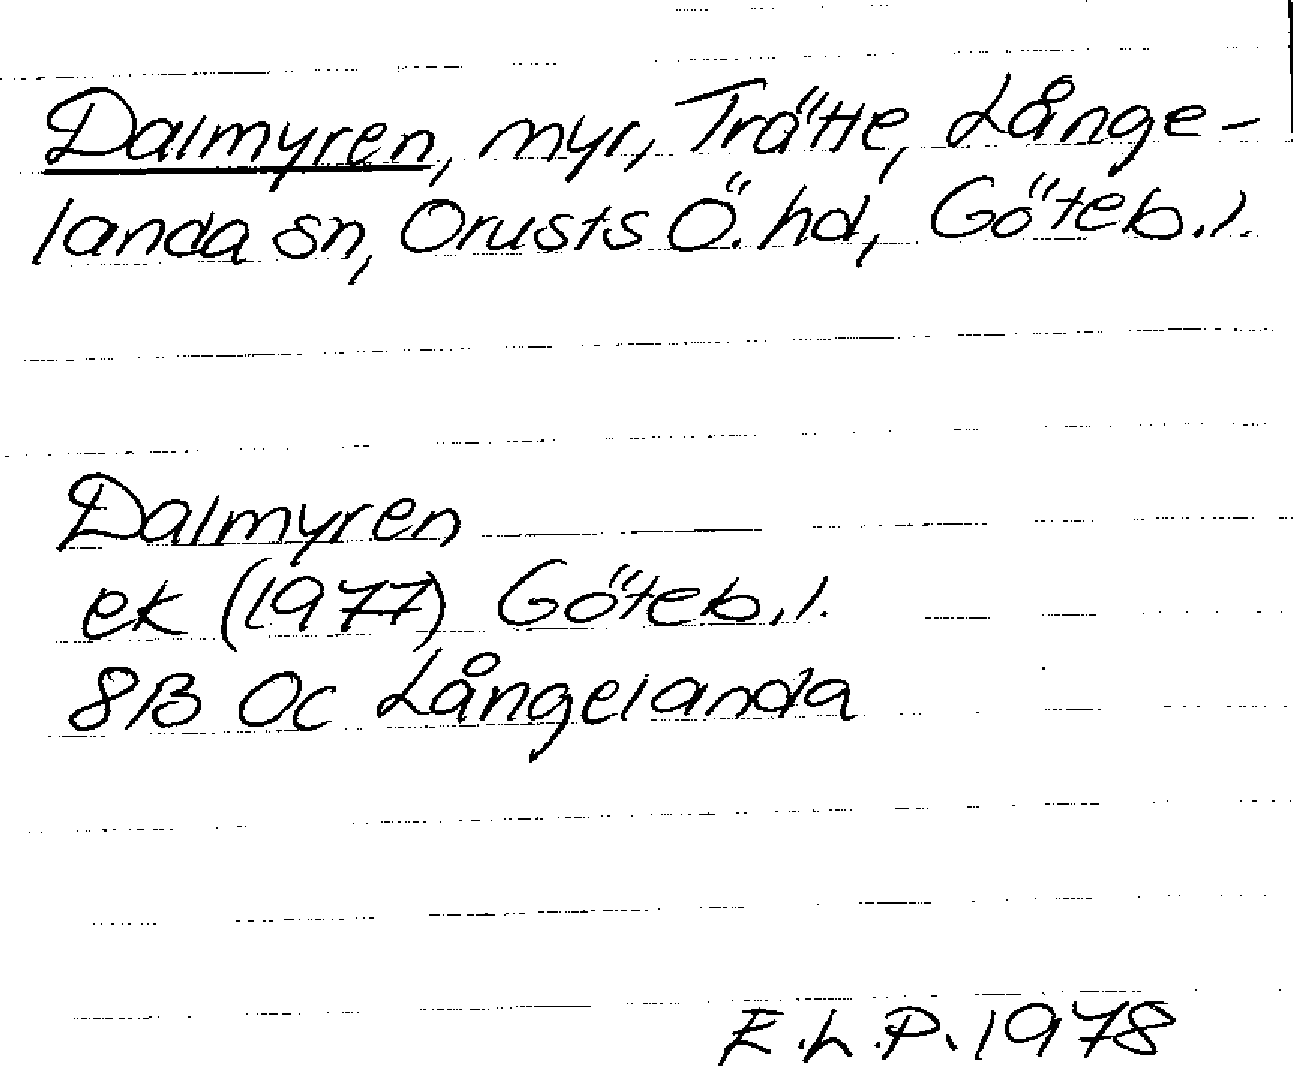 Dalmyren, myr, Trätte, Långe-
landa sn, Orusts Ö. hd, Göteb. l.
Dalmyren
ek (1977) Göteb. l.
8B 0c Långelanda
E.L.P. 1978